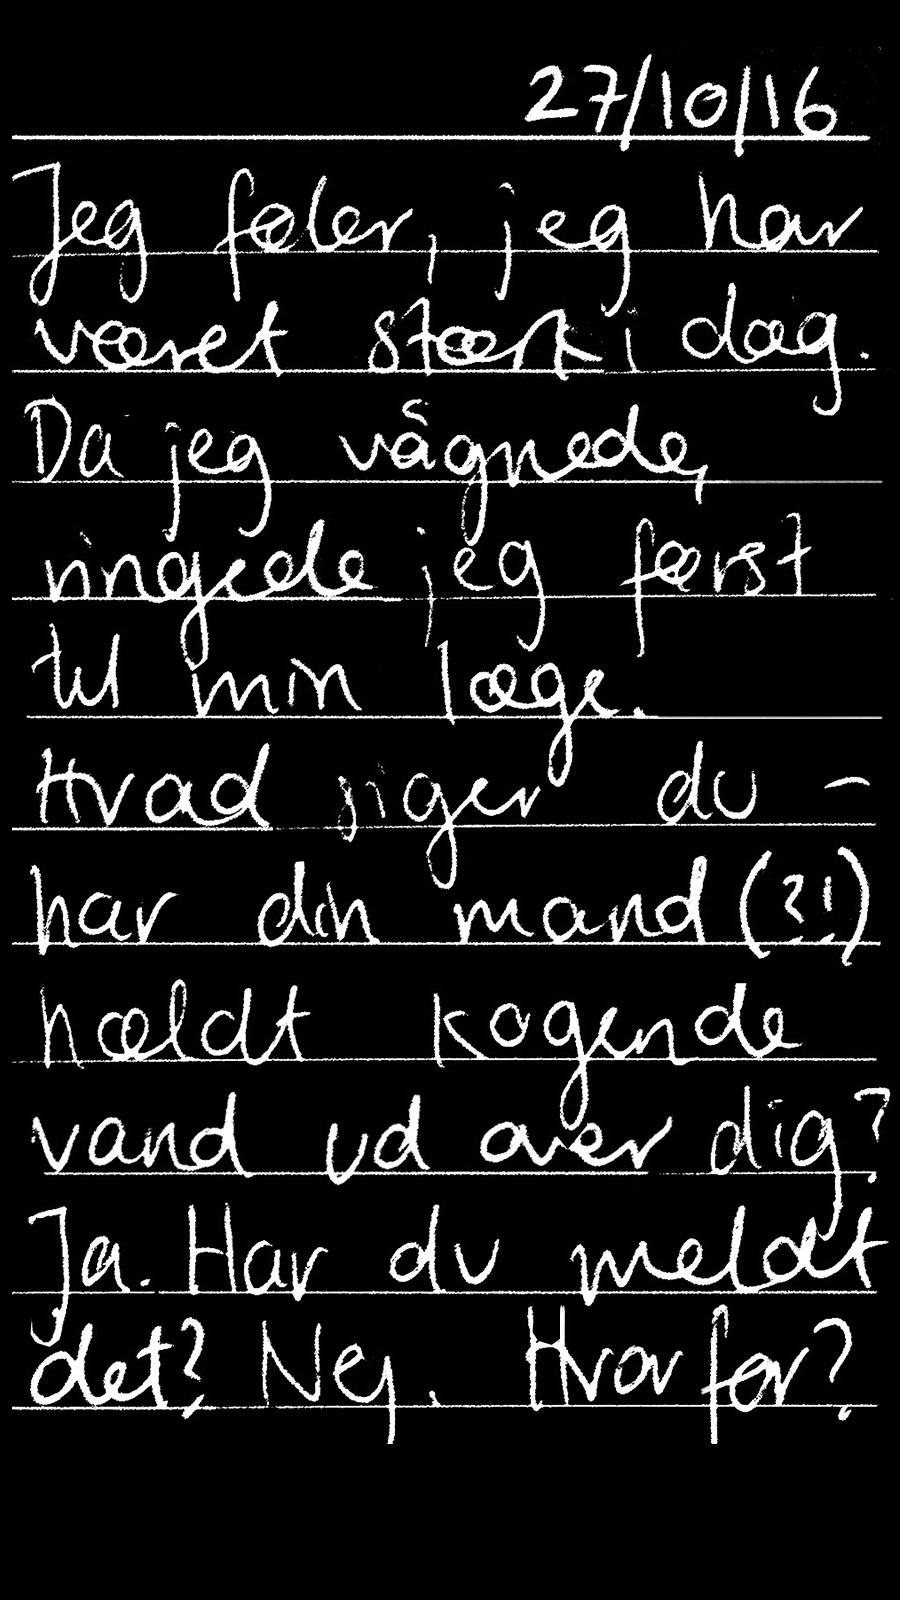 27/10/16
Jeg føler, jeg har
været stærk i dag.
Da jeg vågnede,
ringede jeg først
til min læge.
Hvad siger du -
har din mand (?!)
hældt kogende
vand ud over dig?
Ja. Har du meldt
det? Nej. Hvorfor?